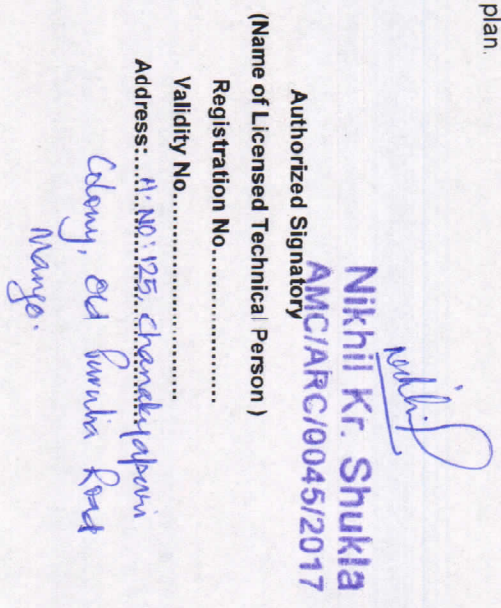 plan.
Nikhil
Nikhil Kr. Shukla
AMC/ARC/0045/2017
Authorized Signatory
(Name of Licensed Technical Person )
Registration No..................
Validity No.......................
Address:... H.NO: 125, Chanakyapuri
Colony, Old Purulia Road
Mango.